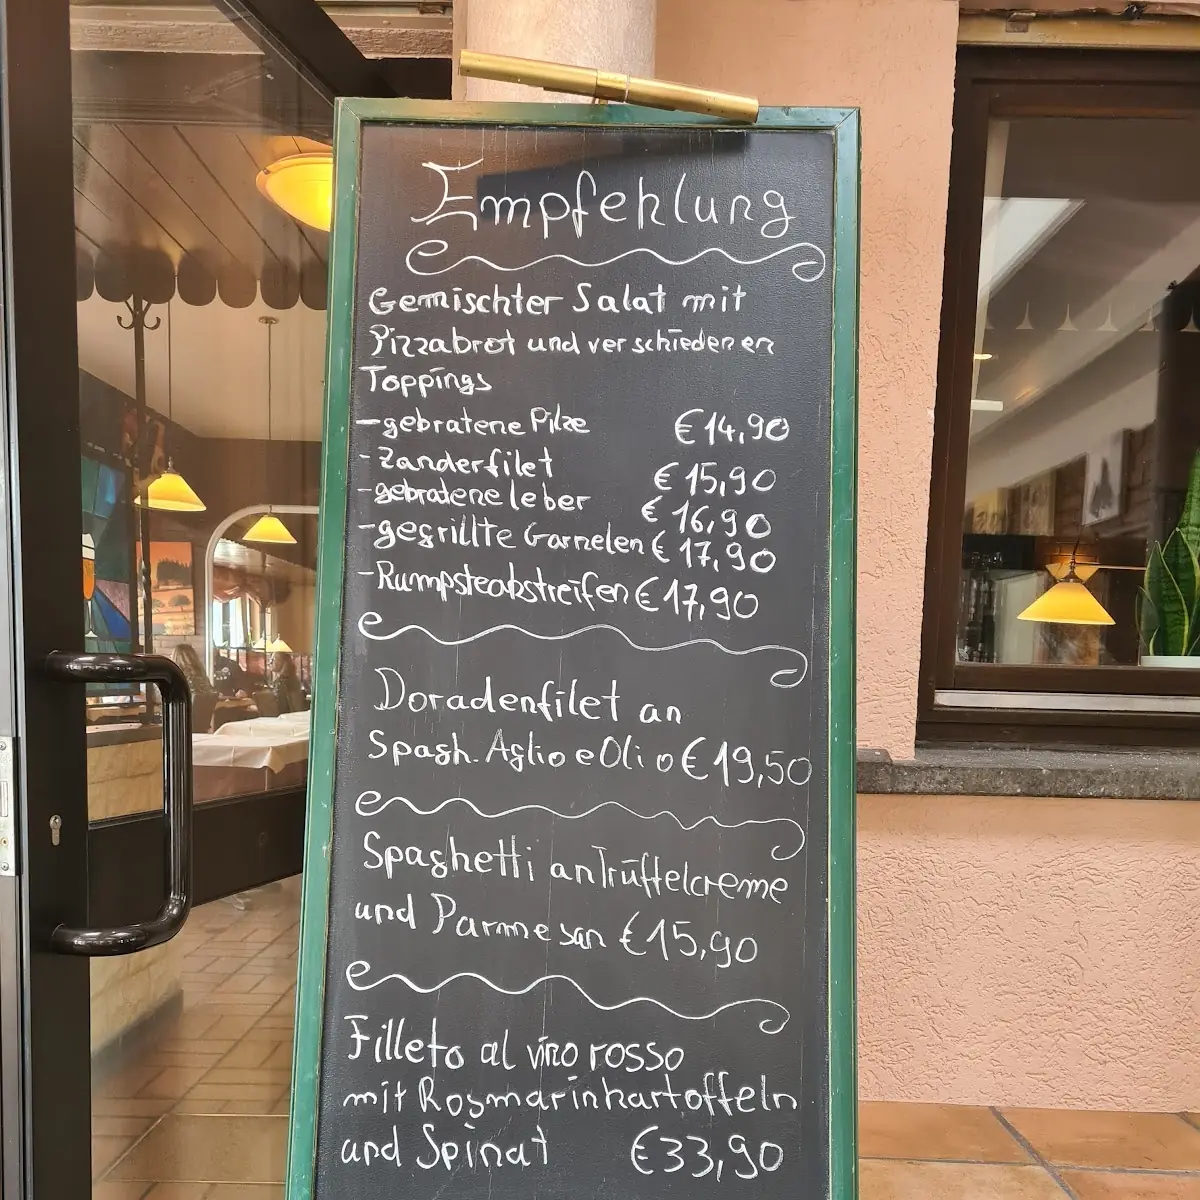 Empfehlung
Gemischter Salat mit
Pizzabrot und verschiedenen
Toppings
-gebratene Pilze €14,90
-Zanderfilet €15,90
-gebratene leber €16,90
-gegrillte Garnelen €17,90
-Rumpsteakstreifen €17,90
Doradenfilet an
Spagh. Aglio e Olio €19,50
Spaghetti an Trüffelcreme
und Parmesan €15,90
Filleto al vino rosso
mit Rosmarinkartoffeln
und Spinat €33,90